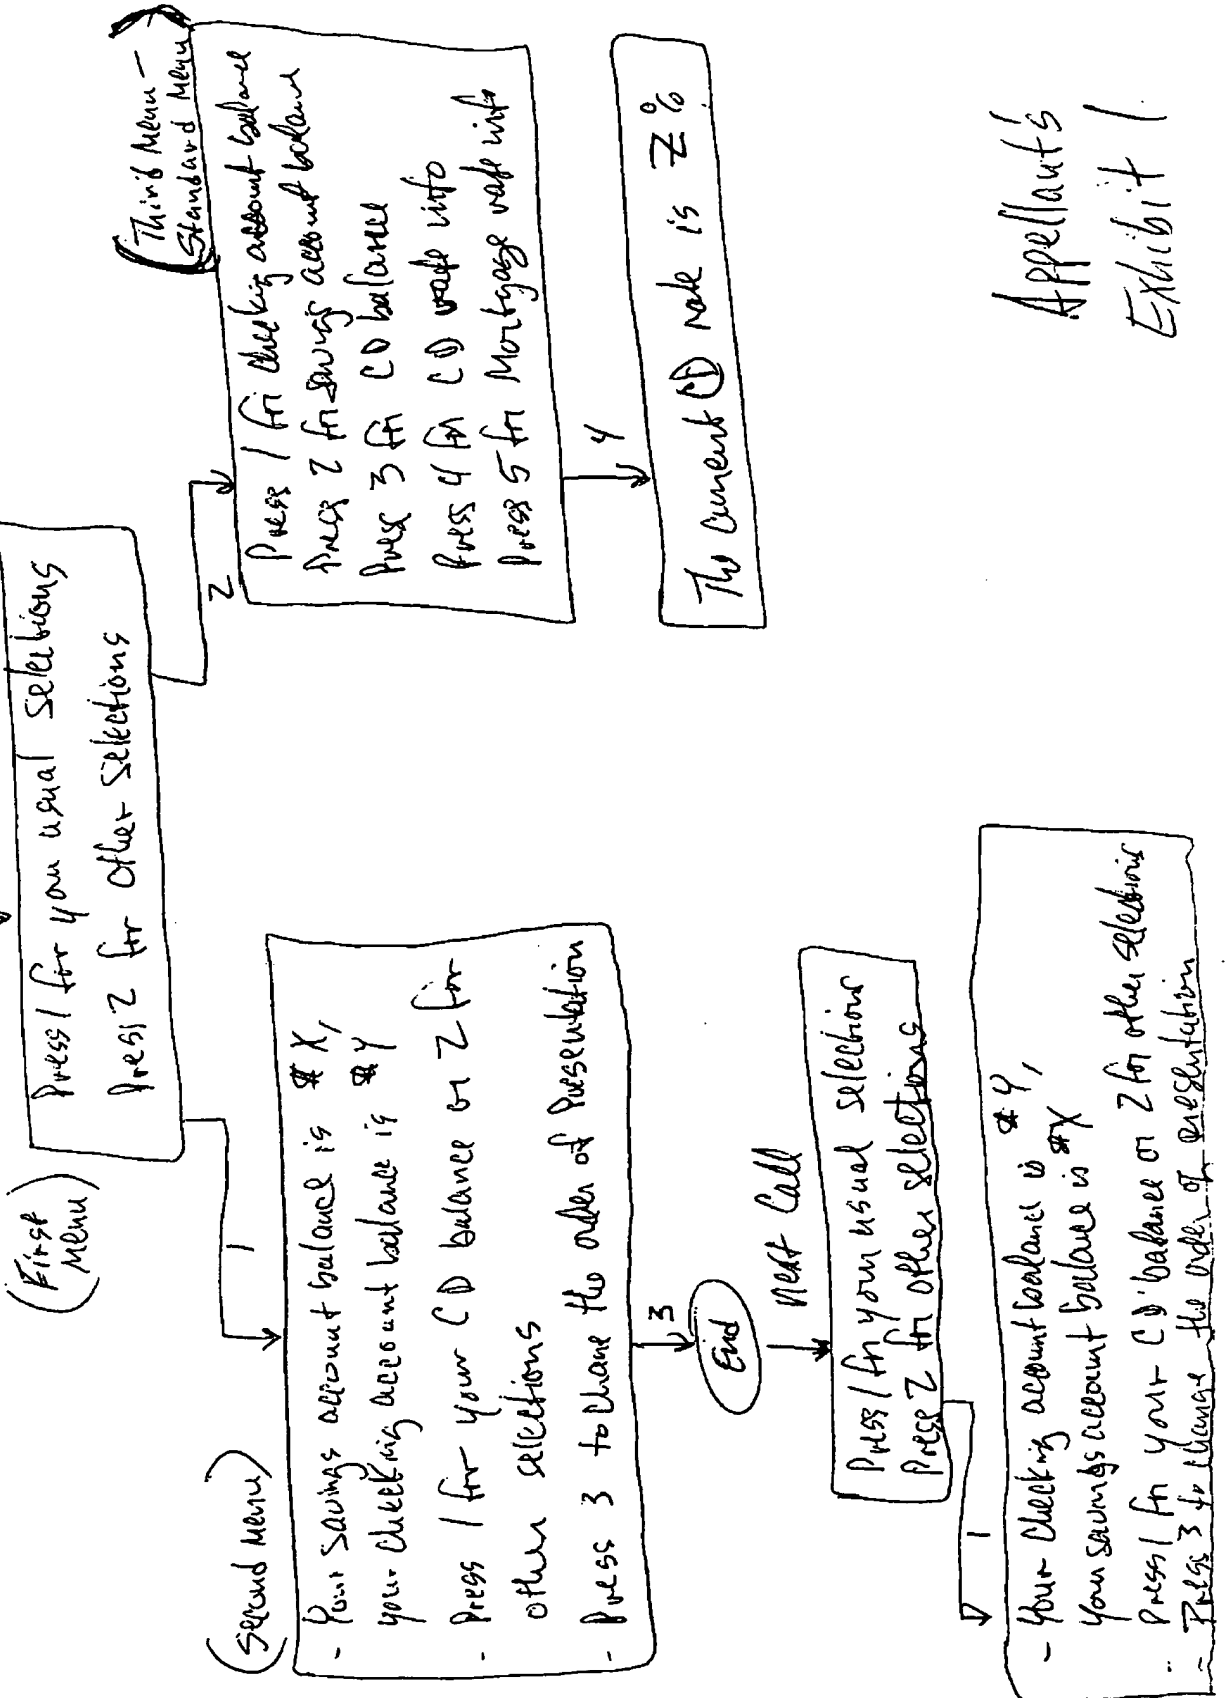 (First
Menu)
Press 1 for your usual selections
Press 2 for other selections
1
2
(Second Menu)
- Your savings account balance is $X,
your checking account balance is $Y
- Press 1 for your CD balance or 2 for
other selections
- Press 3 to change the order of Presentation
3
End
Next Call
Press 1 for your usual selections
Press 2 for other selections
1
- Your checking account balance is $Y,
your savings account balance is $X
- Press 1 for your CD balance or 2 for other selections
- Press 3 to change the order of presentation
(Third Menu -
Standard Menu)
Press 1 for checking account balance
Press 2 for savings account balance
Press 3 for CD balance
Press 4 for CD rate info
Press 5 for Mortgage rate info
4
The current CD rate is Z%
Appellant's
Exhibit 1.